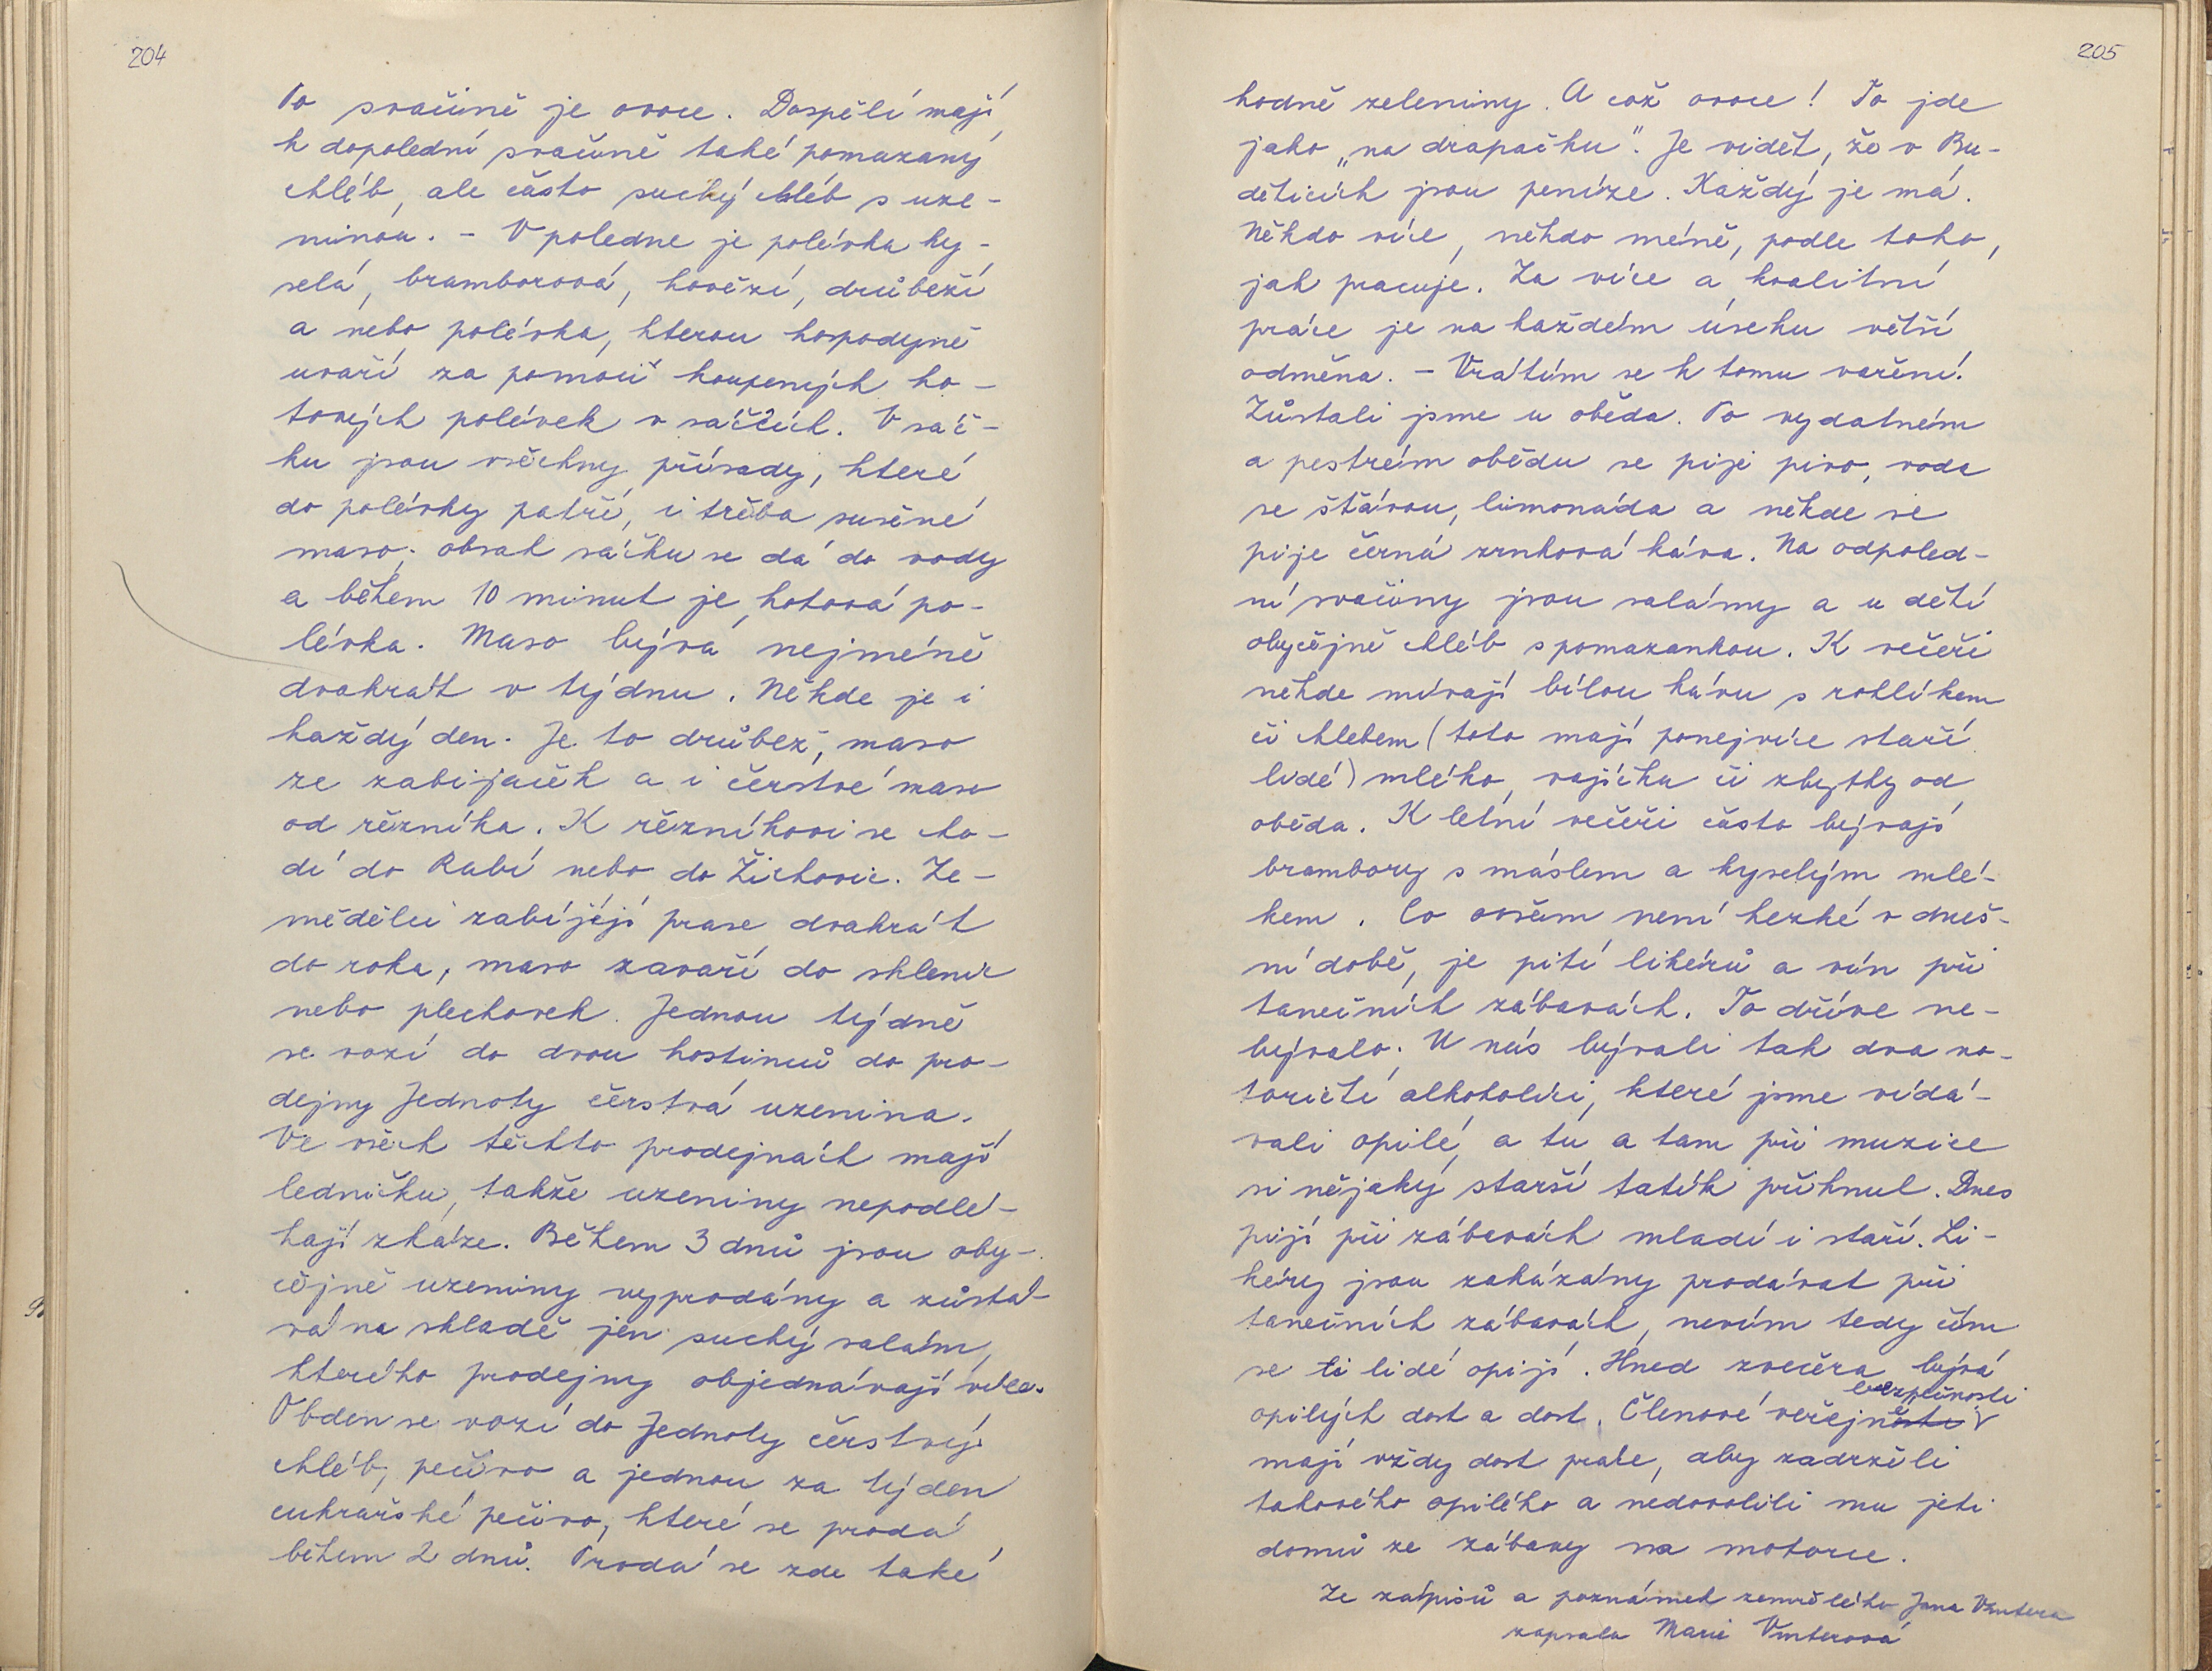 204
Po svačině je ovoce. Dospělí mají
k dopolední svačině také pomazaný
chléb, ale často suchý chléb s uze-
ninou. - V poledne je polévka ky-
selá, bramborová, hovězí, drůbeží
a nebo polévka, kterou hospodyně
uvaří za pomoci koupených ho-
tových polévek v sáčcích. V sáč-
ku jsou všechny přísady, které
do polévky patří, i třeba sušené
maso. obsah sáčku se dá do vody
a během 10 minut je hotová po-
lévka. Maso bývá nejméně
dvakrát v týdnu. Někde je i
každý den. Je to drůbež, maso
ze zabijaček a i čerstvé maso
od řezníka. K řezníkovi se cho-
dí do Rabí nebo do Žichovic. Ze-
mědělci zabíjejí prase dvakrát
do roka, maso zavaří do sklenic
nebo plechovek. Jednou týdně
se vozí do dvou hostinců do pro-
dejny Jednoty čerstvá uzenina.
Ve všech těchto prodejnách mají
ledničku, takže uzeniny nepodlé-
hají zkáze. Během 3 dnů jsou oby-
čejně uzeniny vyprodány a zůstá-
vá na skladě jen suchý salám,
kterého prodejny objednávají více.
Obden se vozí do Jednoty čerstvý
chléb, pečivo a jednou za týden
cukrářské pečivo, které se prodá
během 2 dnů. Prodá se zde také
205
hodně zeleniny. A což ovoce! To jde
jako „na drapačku". Je vidět, že v Bu-
děticích jsou peníze. Každý je má.
Někdo více, někdo méně, podle toho,
jak pracuje. Za více a kvalitní
práce je na každém úseku větší
odměna. - Vrátím se k tomu vaření.
Zůstali jsme u oběda. Po vydatném
a pestrém obědu se pije pivo, voda
se šťávou, limonáda a někde se
pije černá zrnková káva. Na odpoled-
ní svačiny jsou salámy a u dětí
obyčejně chléb s pomazankou. K večeři
někde mívají bílou kávu s rohlíkem
či chlebem (toto mají ponejvíce staří
lidé) mléko, vajíčka či zbytky od
oběda. K letní večeři často bývají
brambory s máslem a kyselým mlé-
kem. Co ovšem není hezké v dneš-
ní době, je pití likérů a vín při
tanečních zábavách. To dříve ne-
bývalo. U nás bývali tak dva no-
toričtí alkoholici, které jsme vídá-
vali opilé, a tu a tam při muzice
si nějaký starší tatík přihnul. Dnes
pijí při zábavách mladí i staří. Li-
kéry jsou zakázány prodávat při
tanečních zábavách, nevím tedy čím
se ti lidé opijí. Hned zvečera bývá
bezpečnosti
opilých dost a dost. Členové veřejné
mají vždy dost práce, aby zadrželi
takového opilého a nedovolili mu jeti
domů ze zábavy na motorce.
Ze zápisů a poznámek zemřelého Jana Vintera
zapsala Marie Vinterová